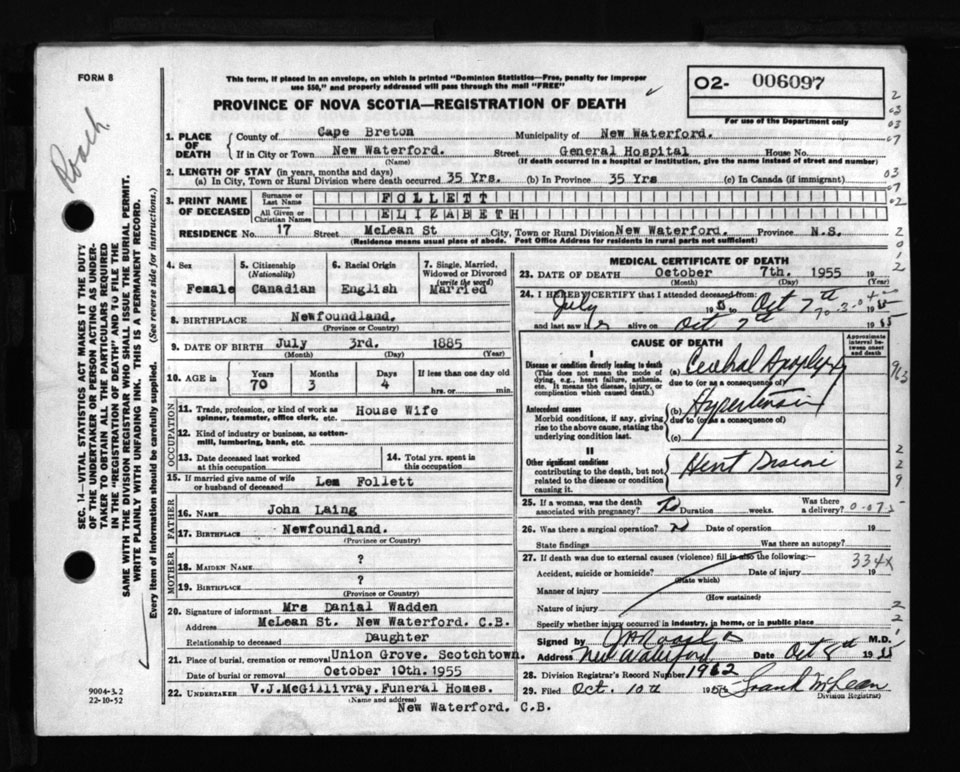 FORM 8
This form, if placed in an envelope, on which is printed "Dominion Statistics—Free, penalty for improper
use $50," and properly addressed will pass through the mail "FREE"
PROVINCE OF NOVA SCOTIA—REGISTRATION OF DEATH
02- 006097
For use of the Department only
Roach
SEC. 14—VITAL STATISTICS ACT MAKES IT THE DUTY
OF THE UNDERTAKER OR PERSON ACTING AS UNDER-
TAKER TO OBTAIN ALL THE PARTICULARS REQUIRED
IN THE "REGISTRATION OF DEATH" AND TO FILE THE
SAME WITH THE DIVISION REGISTRAR WHO SHALL ISSUE THE BURIAL PERMIT.
WRITE PLAINLY WITH UNFADING INK. THIS IS A PERMANENT RECORD.
Every item of information should be carefully supplied. (See reverse side for instructions.)
1. PLACE OF DEATH County of Cape Breton Municipality of New Waterford.
If in City or Town New Waterford. Street General Hospital House No.
(Name) (If death occurred in a hospital or institution, give the name instead of street and number)
2. LENGTH OF STAY (in years, months and days)
(a) In City, Town or Rural Division where death occurred 35 Yrs. (b) In Province 35 Yrs (c) In Canada (if immigrant)
3. PRINT NAME OF DECEASED Surname or Last Name FOLLETT
All Given or Christian Names ELIZABETH
RESIDENCE No. 17 Street McLean St City, Town or Rural Division New Waterford. Province N.S.
(Residence means usual place of abode. Post Office Address for residents in rural parts not sufficient)
4. Sex Female
5. Citizenship (Nationality) Canadian
6. Racial Origin English
7. Single, Married, Widowed or Divorced (write the word) Married
8. BIRTHPLACE Newfoundland.
(Province or Country)
9. DATE OF BIRTH July 3rd. 1885
(Month) (Day) (Year)
10. AGE in Years Months Days If less than one day old
70 3 4 hrs. or min.
OCCUPATION
11. Trade, profession, or kind of work as spinner, teamster, office clerk, etc. House Wife
12. Kind of industry or business, as cotton-mill, lumbering, bank, etc.
13. Date deceased last worked at this occupation
14. Total yrs. spent in this occupation
15. If married give name of wife or husband of deceased Lem Follett
FATHER
16. NAME John Laing
17. BIRTHPLACE Newfoundland.
(Province or Country)
MOTHER
18. MAIDEN NAME ?
19. BIRTHPLACE ?
(Province or Country)
20. Signature of informant Mrs Danial Wadden
Address McLean St. New Waterford. C.B.
Relationship to deceased Daughter
21. Place of burial, cremation or removal Union Grove. Scotchtown.
Date of burial or removal October 10th.1955
22. UNDERTAKER V.J.McGillivray.Funeral Homes.
(Name and address)
New Waterford. C.B.
9004-3.2
22-10-52
MEDICAL CERTIFICATE OF DEATH
23. DATE OF DEATH October 7th. 1955 19
(Month) (Day) (Year)
24. I HEREBY CERTIFY that I attended deceased from:
July 19 to Oct 7th 19
and last saw her alive on Oct 7th 1955
CAUSE OF DEATH
Approximate interval between onset and death
I
Disease or condition directly leading to death (a) Cerebral Apoplexy
(This does not mean the mode of dying, e.g., heart failure, asthenia, etc. It means the disease, injury, or complication which caused death.)
due to (or as a consequence of)
Antecedent causes (b) Hypertension
Morbid conditions, if any, giving rise to the above cause, stating the underlying condition last.
due to (or as a consequence of)
(c)
II
Other significant conditions Heart Disease
contributing to the death, but not related to the disease or condition causing it.
25. If a woman, was the death associated with pregnancy? No Duration weeks. Was there a delivery?
26. Was there a surgical operation? no Date of operation 19
State findings Was there an autopsy?
27. If death was due to external causes (violence) fill in also the following:—
Accident, suicide or homicide? Date of injury 19
(State which)
334x
Manner of injury
(How sustained)
Nature of injury
Specify whether injury occurred in industry, in home, or in public place
Signed by M.D.
Address New Waterford Date Oct 8th 1955
28. Division Registrar's Record Number 1962
29. Filed Oct. 10th 195 Frank McLean
Division Registrar